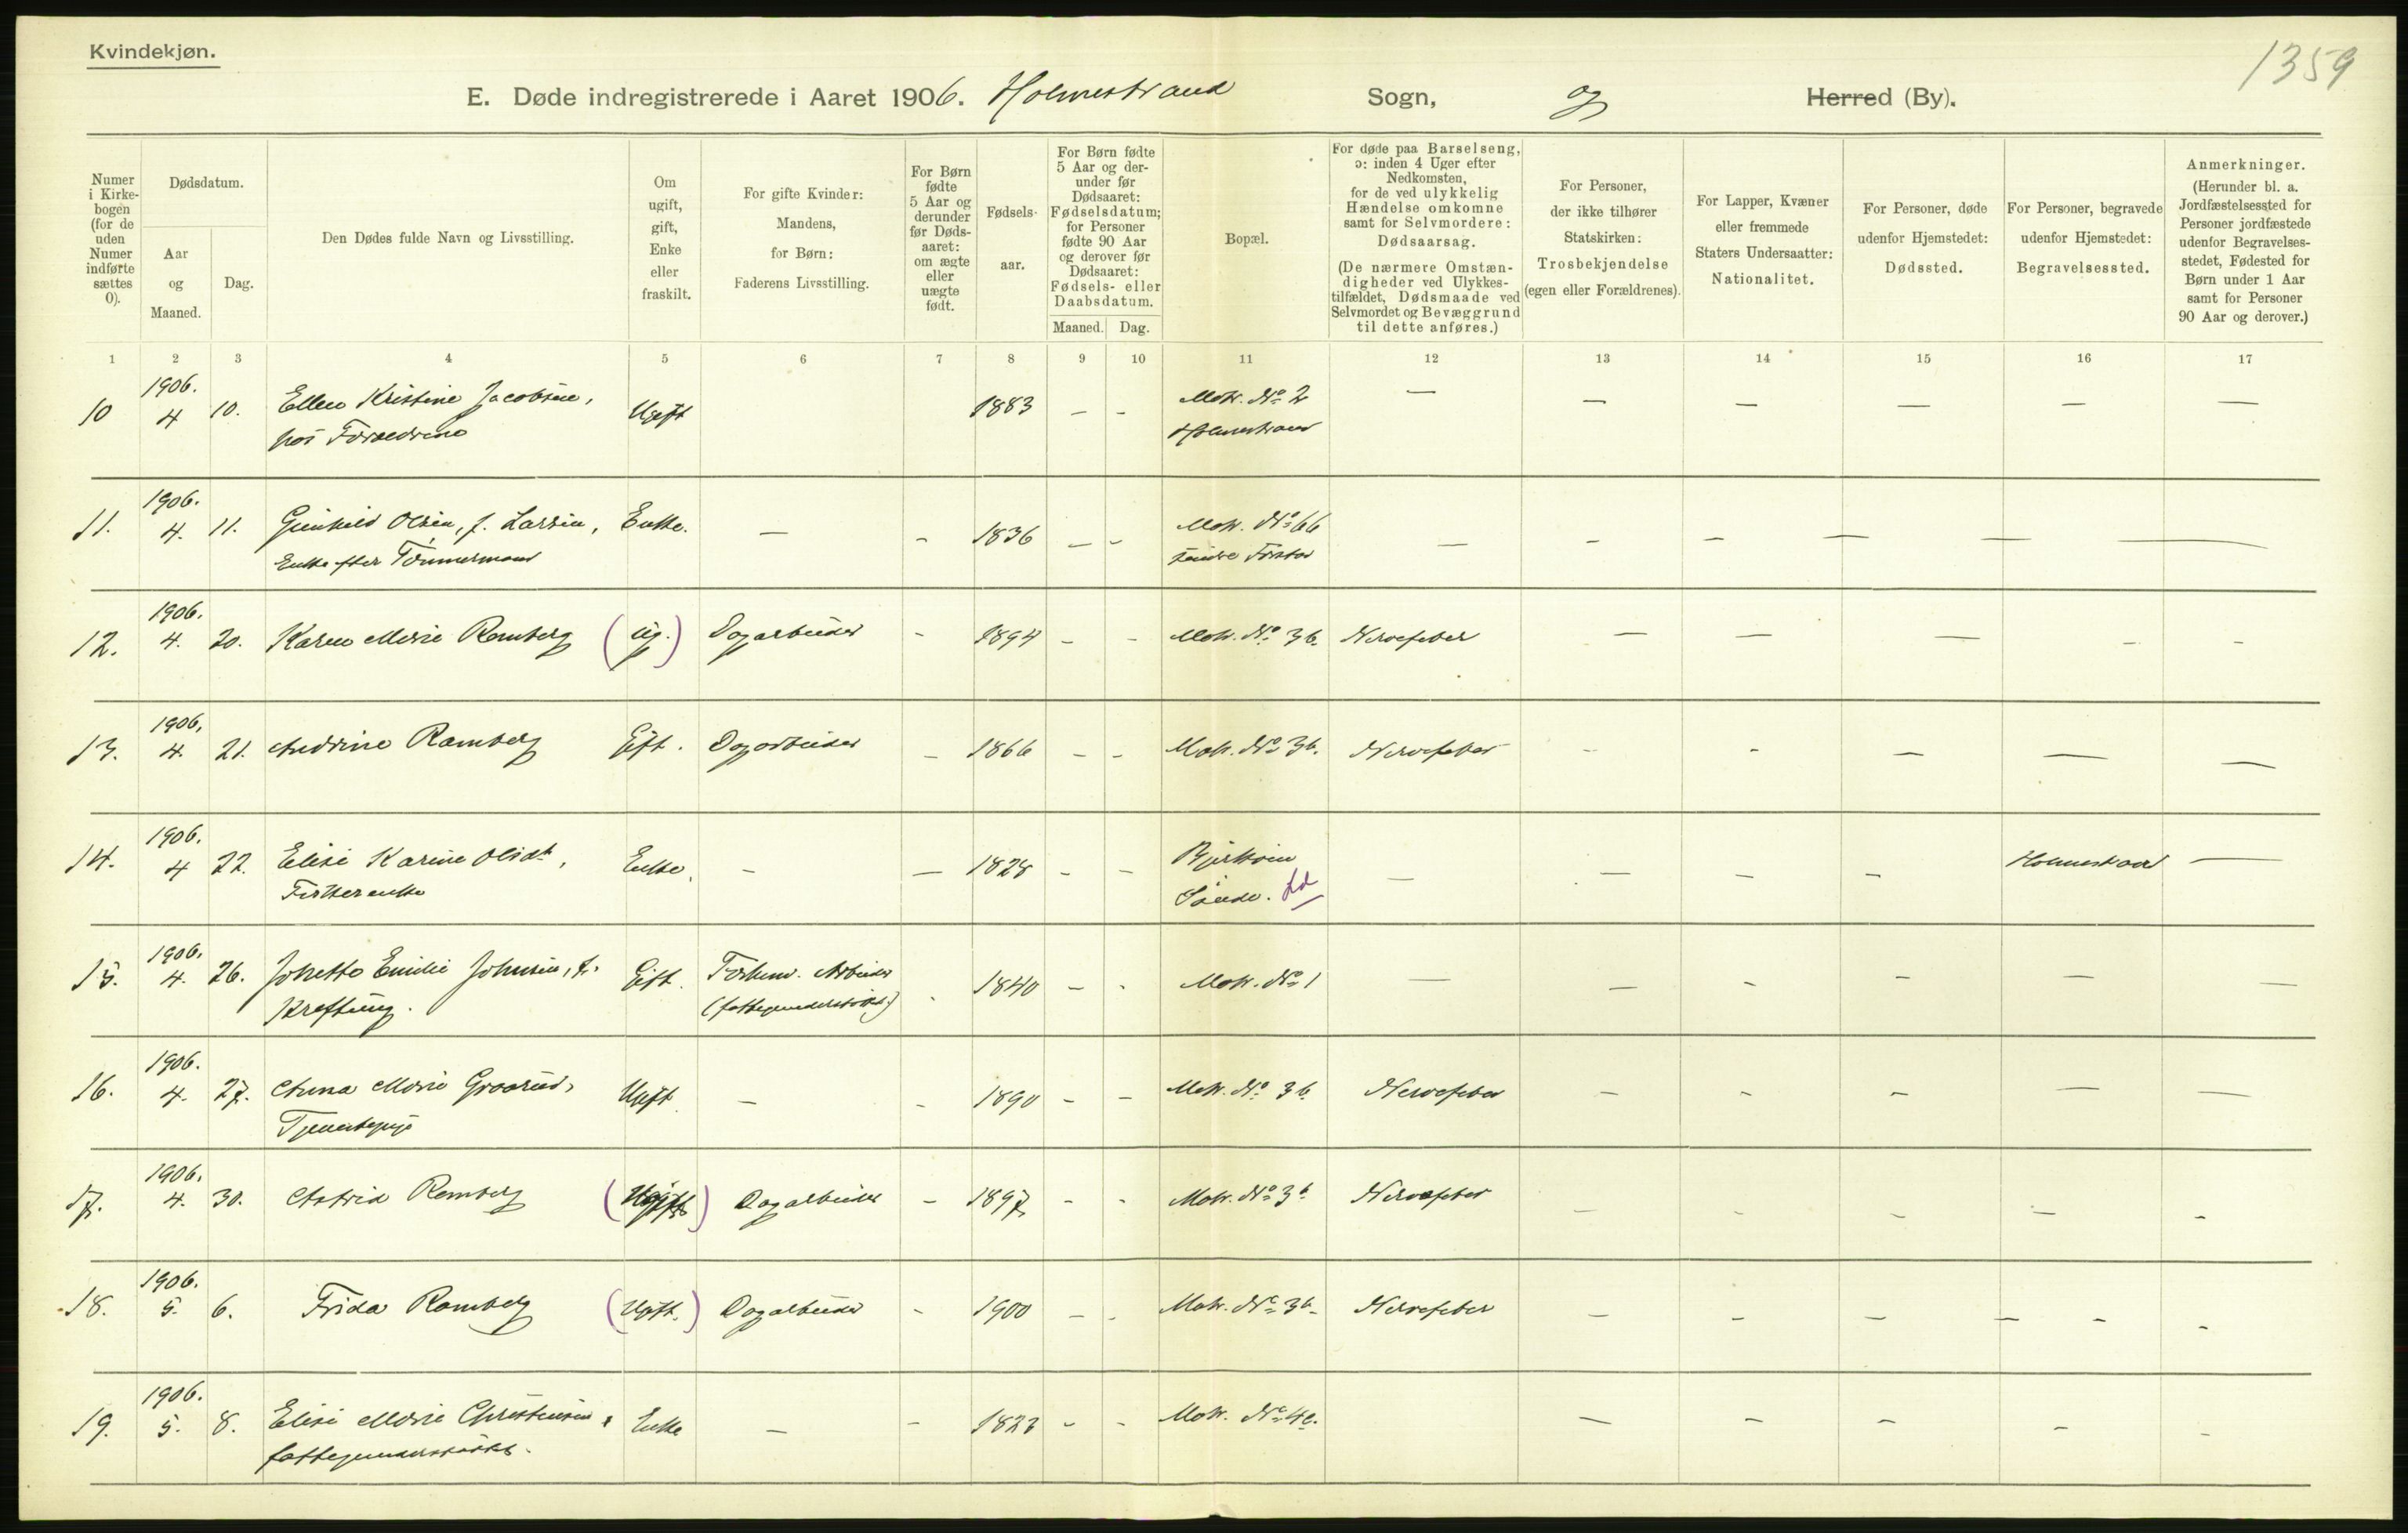 Kvindekjøn.
1359
E. Døde indregistrerede i Aaret 1906. Holmestrand Sogn, og Herred (By).
Numer i Kirkebogen (for de uden Numer indførte sættes 0).
Dødsdatum.
Aar og Maaned.
Dag.
Den Dødes fulde Navn og Livsstilling.
Om ugift, gift, Enke eller fraskilt.
For gifte Kvinder: Mandens, for Børn: Faderens Livsstilling.
For Børn fødte 5 Aar og derunder før Dødsaaret: om ægte eller uægte født.
Fødselsaar.
For Børn fødte 5 Aar og derunder før Dødsaaret: Fødselsdatum; for Personer fødte 90 Aar og derover før Dødsaaret: Fødsels- eller Daabsdatum.
Maaned. Dag.
Bopæl.
For døde paa Barselseng, ɔ: inden 4 Uger efter Nedkomsten, for de ved ulykkelig Hændelse omkomne samt for Selvmordere: Dødsaarsag. (De nærmere Omstændigheder ved Ulykkestilfældet, Dødsmaade ved Selvmordet og Bevæggrund til dette anføres.)
For Personer, der ikke tilhører Statskirken: Trosbekjendelse (egen eller Forældrenes).
For Lapper, Kvæner eller fremmede Staters Undersaatter: Nationalitet.
For Personer, døde udenfor Hjemstedet: Dødssted.
For Personer, begravede udenfor Hjemstedet: Begravelsessted.
Anmerkninger. (Herunder bl. a. Jordfæstelsessted for Personer jordfæstede udenfor Begravelsesstedet, Fødested for Børn under 1 Aar samt for Personer 90 Aar og derover.)
1 2 3 4 5 6 7 8 9 10 11 12 13 14 15 16 17
10 1906. 4 10. Ellen Kristine Jacobsen, Ugift 1883 - - Matr. No 2 — — — — — —
hos Forældrene Holmestrand
11. 1906. 4. 11. Gunhild Olsen, f. Larsen, Enke. — - 1836 - - Matr. No 66 — — — — —
Enke efter Tømmermand søndre Forstad
12. 1906. 4. 20. Karen Marie Ramberg (ug.) Dagarbeider - 1894 - - Matr. No 3b. Nervefeber — — — - -
13. 1906. 4. 21. Andrine Ramberg Gift. Dagarbeider - 1866 - - Matr. No 3b. Nervefeber - - — — —
14. 1906. 4 22. Elise Karine Olsdt, Enke. - — 1828 - - — — - - Holmestrand —
Fiskerenke Sande. Ld
15. 1906. 4. 26. Emilie Johnsen, f. Gift. Forhenv. Arbeider - 1840 - - Matr. No 1 — — - - — —
Krefting. (fattigunderstøttet)
16. 1906. 4. 27. Anna Marie Graarud, Ugift. - - 1890 - - Matr. No 3b Nervefeber — - - — —
Tjenestepige
17. 1906. 4. 30. Astrid Ramberg (Ugift) Dagarbeider - 1897 - - Matr. No 3b Nervefeber — - - — -
18. 1906. 5. 6. Frida Ramberg (Ugift.) Dagarbeider - 1900 - - Matr. No 3b- Nervefeber — - — - - -
19. 1906. 5. 8. Elise Marie Christensen, Enke — - 1823 - - Matr. No 4c. — - - - -
fattigunderstøttet.